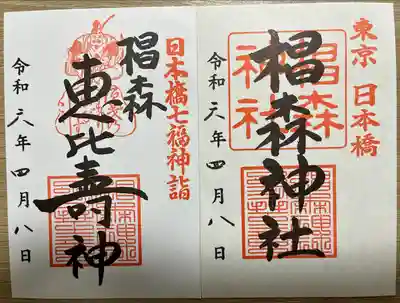 東京 日本橋
椙森
神社
椙森神社
令和六年四月八日
日本橋七福神詣
椙森
恵比壽神
令和六年四月八日